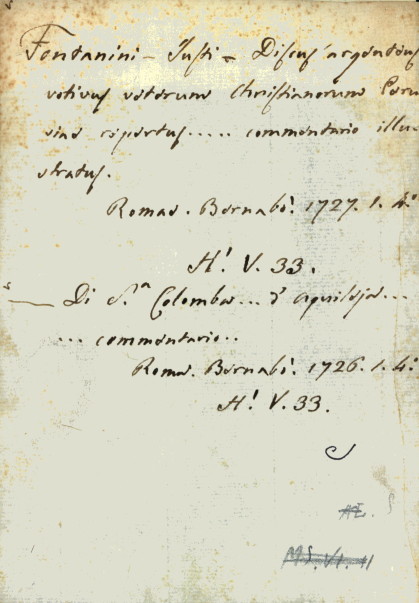 Fontanini - Justi = Discus argenteus
votivus veterum Christianorum Peru
siae repertus..... commentario illu-
stratus.
Romae. Bernabò. 1727. 1. 4.°
H! V. 33.
s — Di S.ta Colomba... d'Aquileja...
... commentario..
Roma. Bernabò. 1726. 1. 4.°
H! V. 33.
AE. S
MS. VI. 11